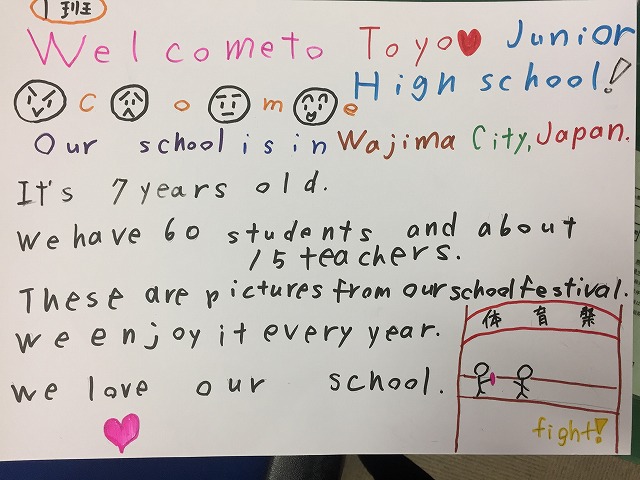 1班
Welcome to Toyo Junior
High school!
Come
Our school is in Wajima City, Japan.
It's 7 years old.
We have 60 students and about
15 teachers.
These are pictures from our school festival.
we enjoy it every year.
we love our school.
体育祭
fight!